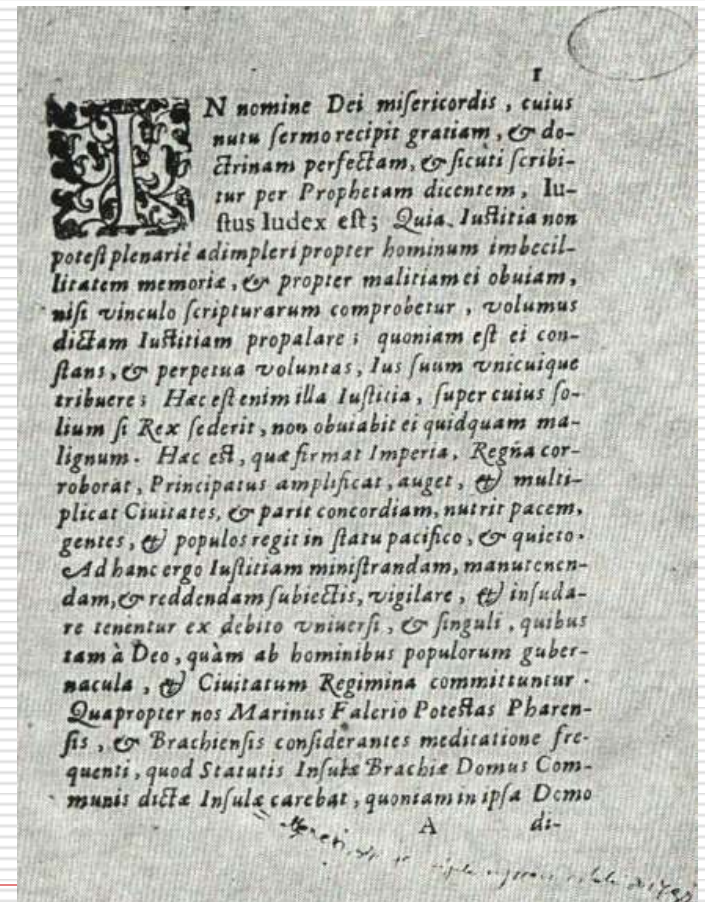 1
IN nomine Dei miſericordis, cuius
nutu ſermo recipit gratiam, & do-
ctrinam perfectam, & ſicùti ſcribi-
tur per Prophetam dicentem, Iu-
ſtus Iudex eſt; Quia Iuſtitia non
poteſt plenariè adimpleri propter hominum imbecil-
litatem memoriæ, & propter malitiam ei obuiam,
niſi vinculo ſcripturarum comprobetur, volumus
dictam Iuſtitiam propalare; quoniam eſt ei con-
ſtans, & perpetua voluntas, Ius ſuum vnicuique
tribuere; Hæc eſt enim illa Iuſtitia, ſuper cuius ſo-
lium ſi Rex ſederit, non obuiabit ei quidquam ma-
lignum. Hæc eſt, quæ firmat Imperia, Regña cor-
roborat, Principatus amplificat, auget, & multi-
plicat Ciuitates, & parit concordiam, nutrit pacem,
gentes, & populos regit in ſtatu pacifico, & quieto.
Ad hanc ergo Iuſtitiam miniſtrandam, manutenen-
dam, & reddendam ſubiectis, vigilare, & inſuda-
re tenentur ex debito vniuerſi, & ſinguli, quibus
tam à Deo, quàm ab hominibus populorum guber-
nacula, & Ciuitatum Regimina committuntur.
Quapropter nos Marinus Falerio Poteſtas Pharen-
ſis, & Brachienſis conſiderantes meditatione fre-
quenti, quod Statutis Inſulæ Brachiæ Domus Com-
munis dictæ Inſulæ carebat, quoniam in ipſa Domo
A di-